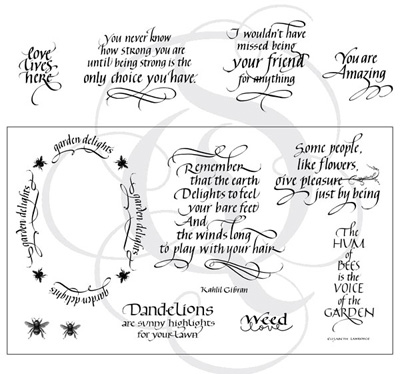 love
lives
here
You never know
how strong you are
until being strong is the
only choice you have.
I wouldn't have
missed being
your friend
for anything
You are
Amazing
garden delights
garden delights
garden delights
garden delights
Remember
that the earth
Delights to feel
your bare feet
And
the winds long
to play with your hair
Kahlil Gibran
Some people,
like flowers,
give pleasure
just by being
The
HUM
of
BEES
is the
VOICE
of the
GARDEN
ELIZABETH LAWRENCE
Dandelions
are sunny highlights
for your lawn
weed
love